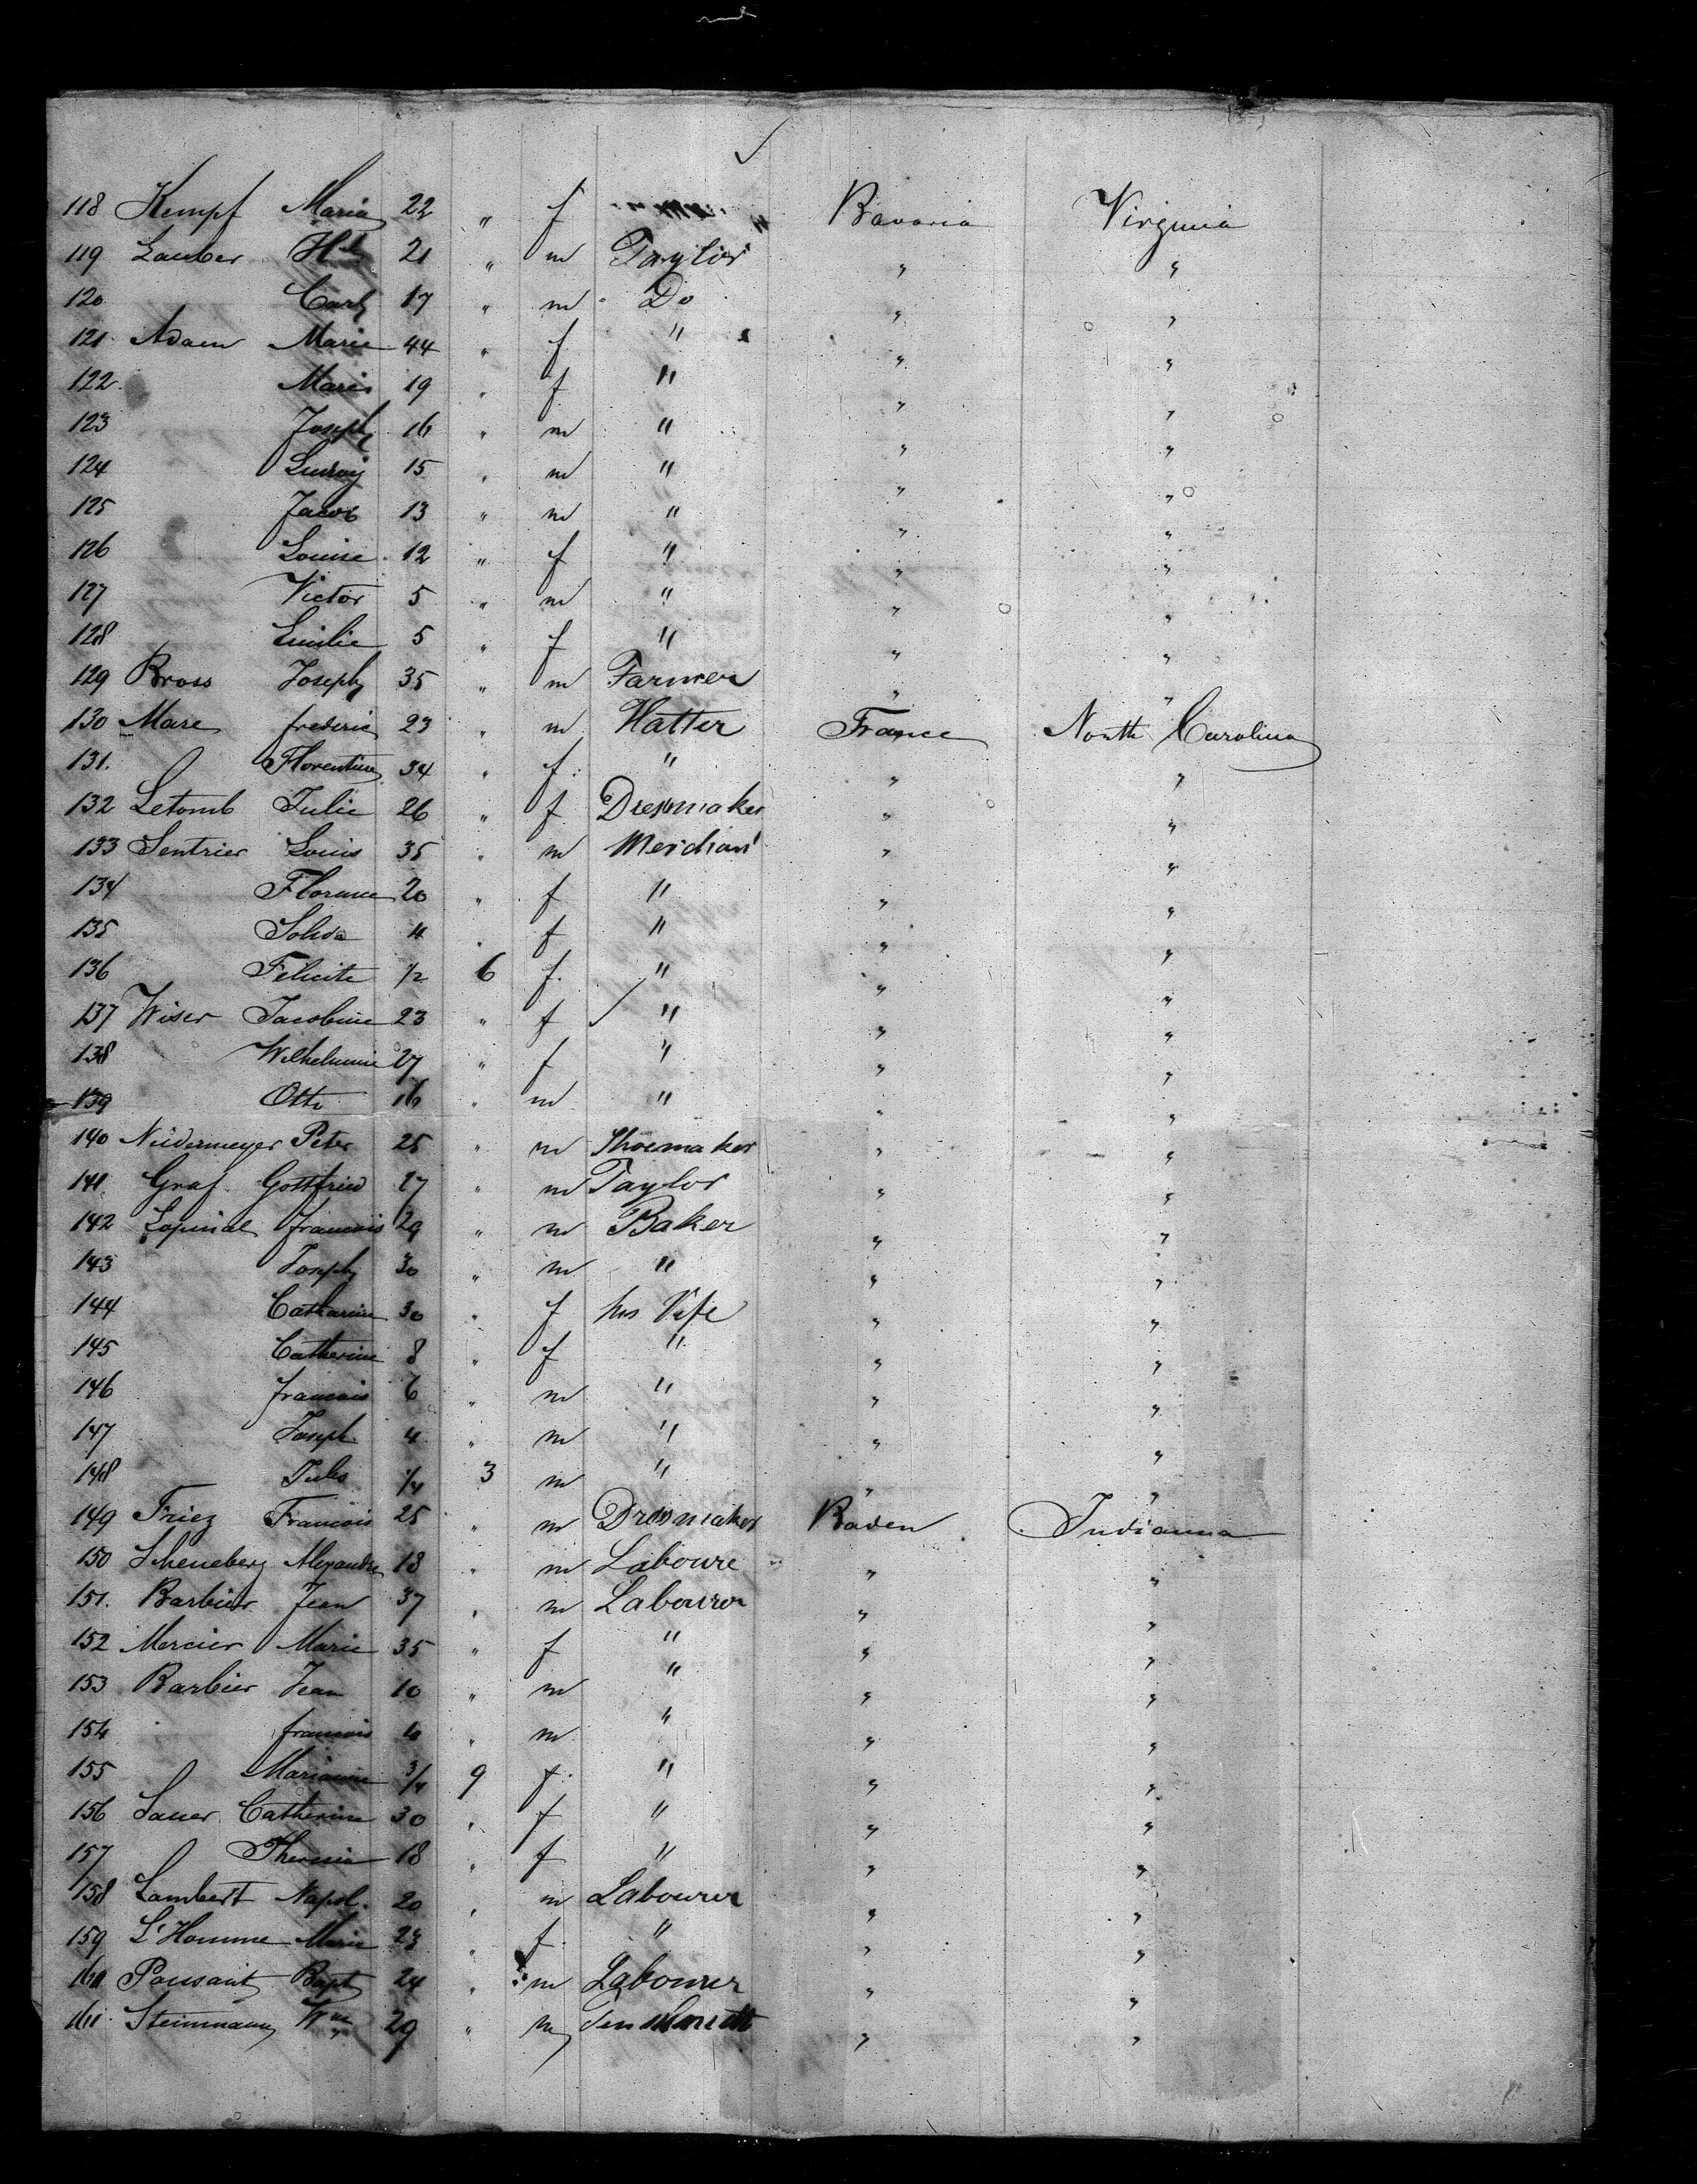 118 Kempf Maria 22 " f " Bavaria Virginia
119 Lauber 21 " m Taylor " "
120 Carl 17 " m Do " "
121 Adam Marie 44 " f " " "
122 Marie 19 " f " " "
123 Joseph 16 " m " " "
124 Ludwig 15 " m " " "
125 Jacob 13 " m " " "
126 Louise 12 " f " " "
127 Victor 5 " m " " "
128 Emilie 5 " f " " "
129 Bross Joseph 35 " m Farmer " "
130 Mare frederic 23 " m Hatter France North Carolina
131. Florentine 34 " f " " "
132 Letomb Julie 26 " f Dressmaker " "
133 Sentrier Louis 35 " m " "
134 Florence 20 " f " " "
135 4 " f " " "
136 Felicite 1/2 6 f. " " "
137 Wiser Jacobine 23 " f " " "
138 Wilhelmine 27 " f " " "
139 Otto 16 " m " " "
140 Niedermeyer Peter 25 " m Shoemaker " "
141 Graf Gottfried 27 " m Taylor " "
142 francois 29 " m Baker " "
143 Joseph 30 " m " " "
144 Catharine 30 " f his Vife " "
145 Catherine 8 " f " " "
146 francois 6 " m " " "
147 Joseph 4 " m " " "
148 Jules 1/4 3 m " " "
149 Friez Francois 25 " m Dressmaker Baden Indianna
150 Scheneberg Alexandre 18 " m Laboure " "
151. Barbier Jean 37 " m Labourer " "
152 Mercier Marie 35 " f " " "
153 Barbier Jean 10 " m " " "
154 francois 4 " m " " "
155 Marianne 3/4 9 f. " " "
156 Sauer Catherine 30 " f " " "
157 Theresia 18 " f " " "
158 Lambert Napol. 20 " m Labourer " "
159 L'Homme Marie 23 " f " " "
160 Poussant Bapt 24 " m Labourer " "
161 Steinmann Wm 29 " m " "